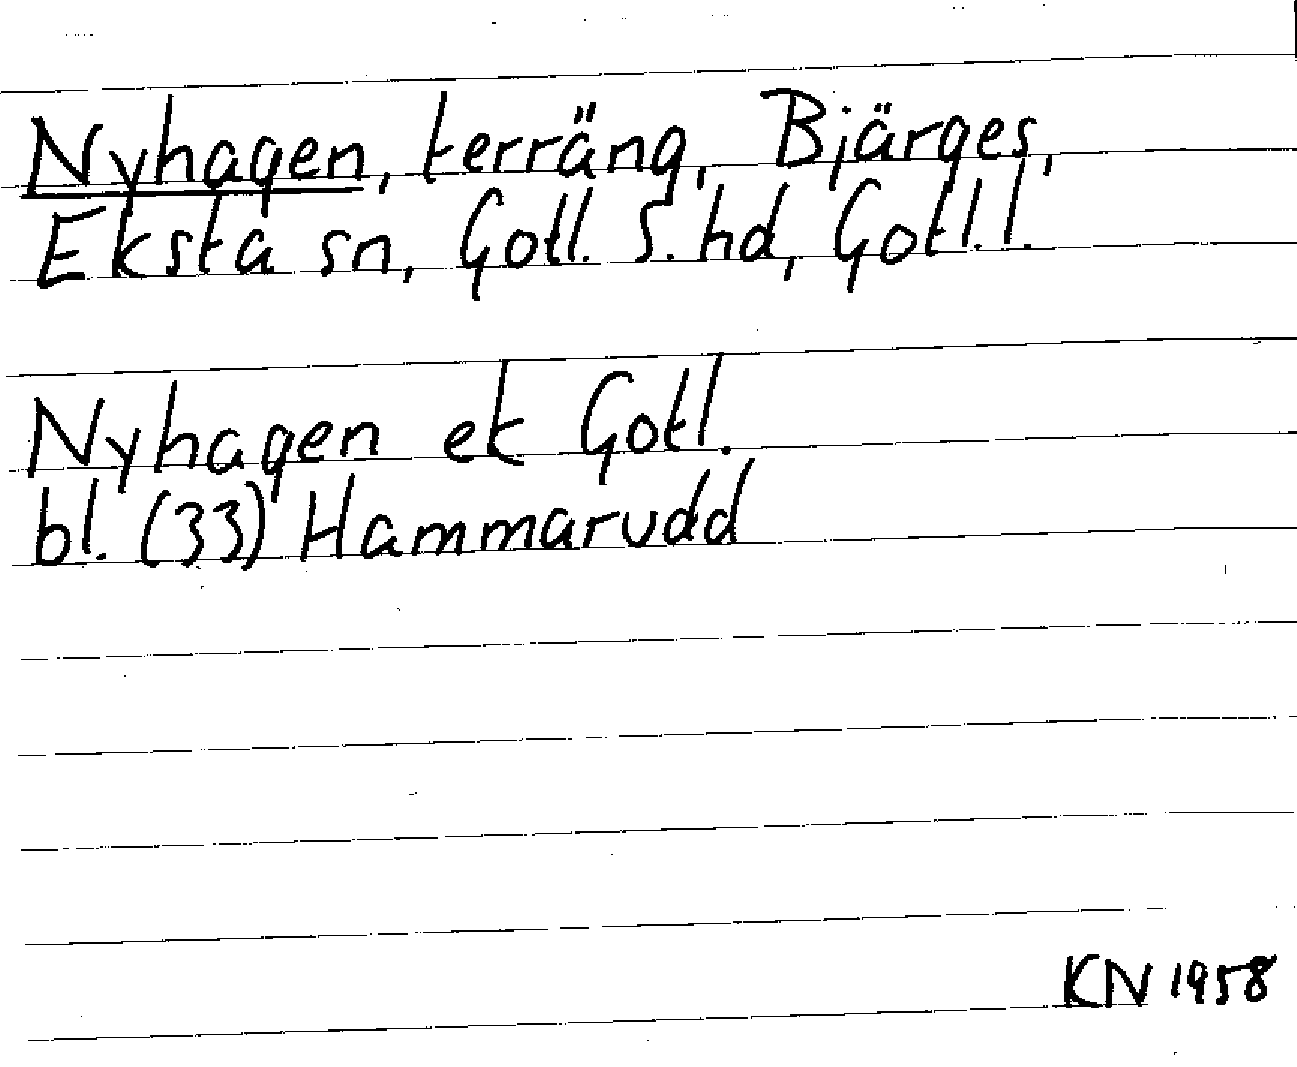 Nyhagen, terräng, Bjärges,
Eksta sn, Gotl. S. hd, Gotl. l.
Nyhagen ek Gotl.
bl. (33) Hammarudd
KN 1958